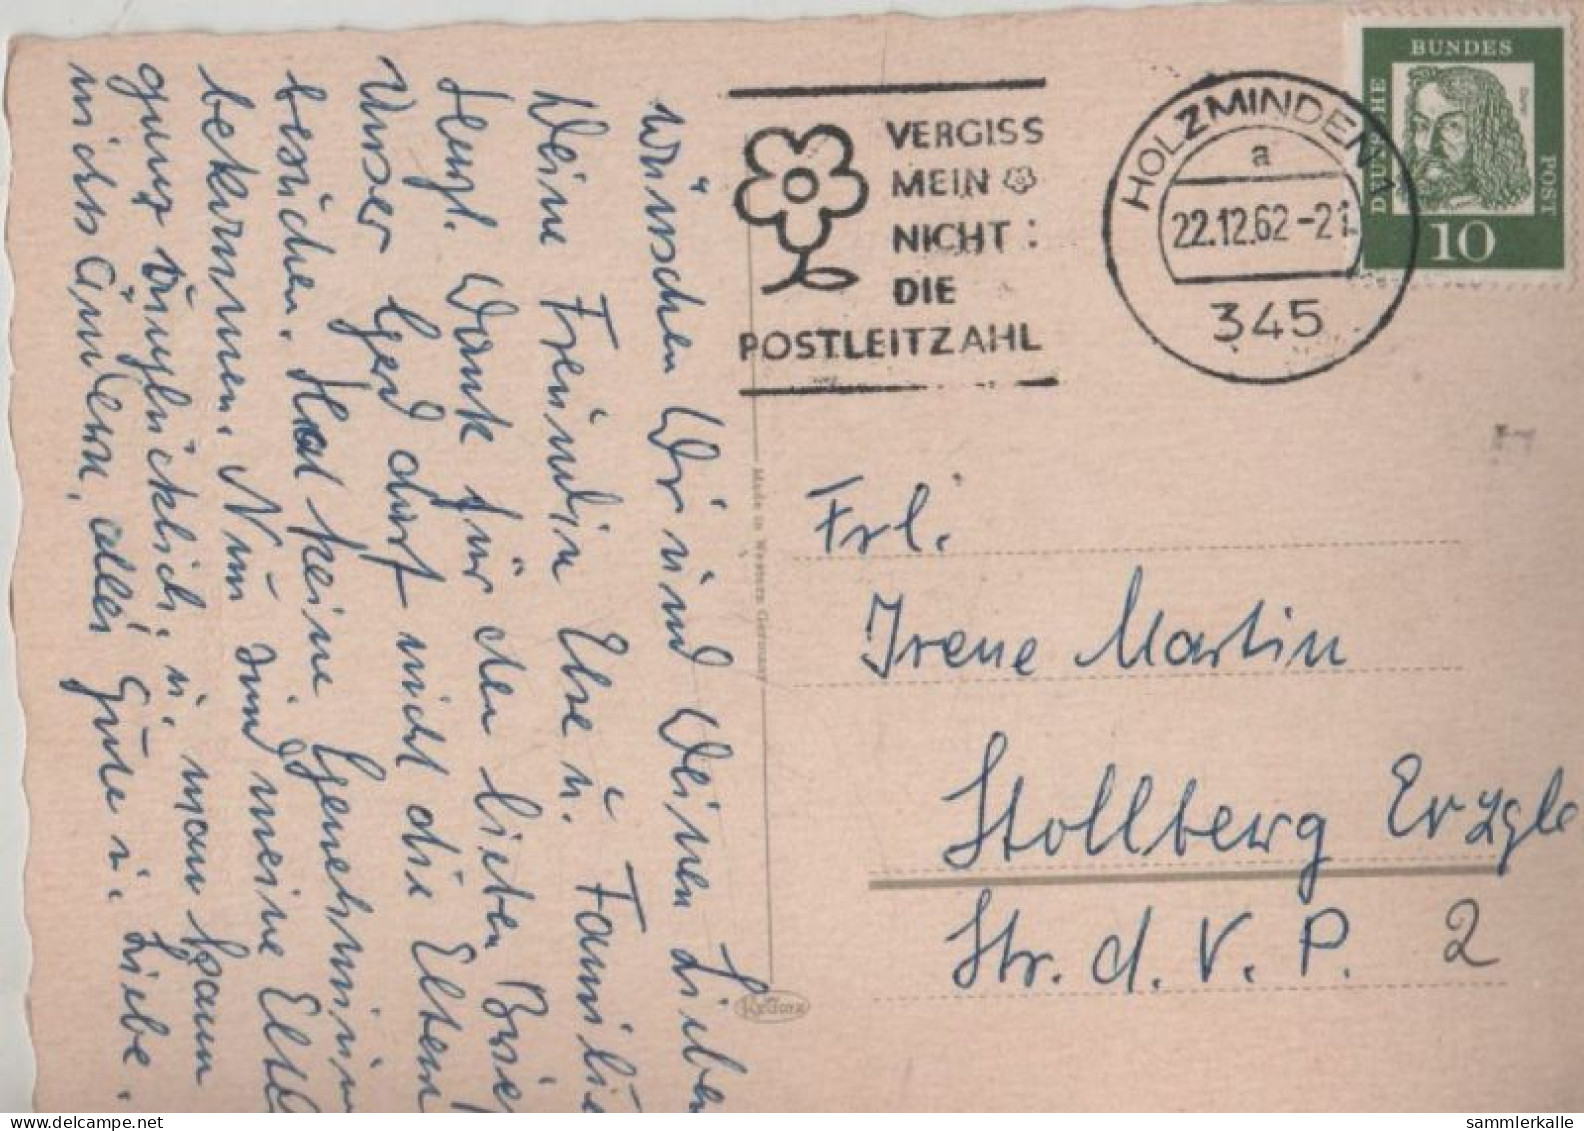 wünschen Wir und Deinen Lieben
Deine Freundin Else u. Familie
Herzl. Dank für den lieben Brief
Unser Gerd darf nicht die Eltern
besuchen. Hat keine Genehmimi
bekommen. Nun sind meine Elte
ganz unglücklich, u. man kann
nichts ändern, alles Gute u. Liebe.
VERGISS
MEIN
NICHT :
DIE
POSTLEITZAHL
HOLZMINDEN 1
a
22.12.62-21
345
DEUTSCHE
BUNDES
POST
Dürer
10
Made in Western Germany
Krüger
Frl.
Irene Martin
Stollberg Erzgb
Str. d. V. P. 2
sammlerkalle